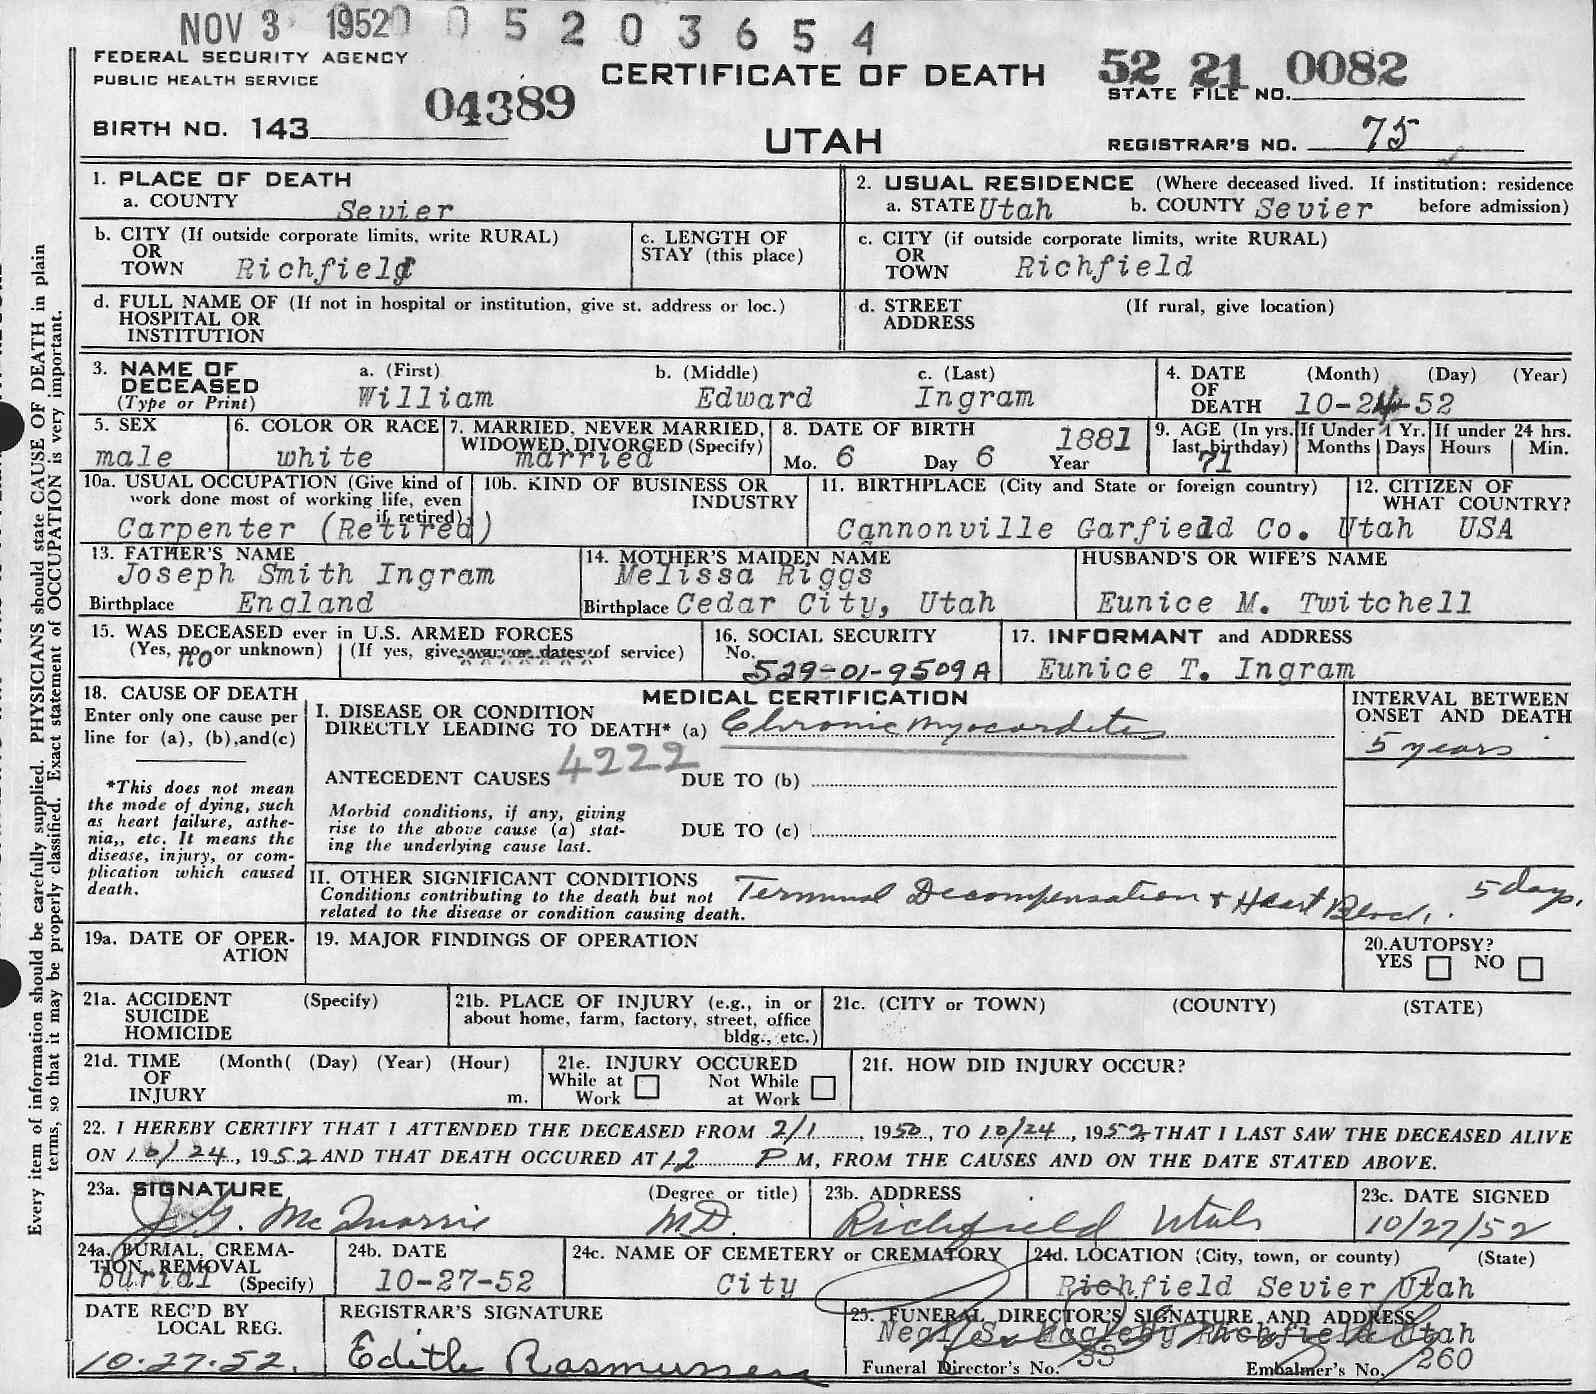 NOV 3 1952 0 5 2 0 3 6 5 4
FEDERAL SECURITY AGENCY
PUBLIC HEALTH SERVICE
CERTIFICATE OF DEATH
52 21 0082
STATE FILE NO.
04389
BIRTH NO. 143
UTAH
REGISTRAR'S NO. 75
1. PLACE OF DEATH
a. COUNTY Sevier
2. USUAL RESIDENCE (Where deceased lived. If institution: residence before admission)
a. STATE Utah b. COUNTY Sevier
b. CITY (If outside corporate limits, write RURAL)
OR
TOWN Richfield
c. LENGTH OF
STAY (this place)
c. CITY (if outside corporate limits, write RURAL)
OR
TOWN Richfield
d. FULL NAME OF (If not in hospital or institution, give st. address or loc.)
HOSPITAL OR
INSTITUTION
d. STREET (If rural, give location)
ADDRESS
3. NAME OF
DECEASED
(Type or Print)
a. (First) b. (Middle) c. (Last)
William Edward Ingram
4. DATE (Month) (Day) (Year)
OF
DEATH 10-24-52
5. SEX
male
6. COLOR OR RACE
white
7. MARRIED, NEVER MARRIED,
WIDOWED, DIVORCED (Specify)
married
8. DATE OF BIRTH 1881
Mo. 6 Day 6 Year
9. AGE (In yrs.
last birthday)
71
If Under 1 Yr.
Months Days
If under 24 hrs.
Hours Min.
10a. USUAL OCCUPATION (Give kind of
work done most of working life, even
if retired)
Carpenter (Retired)
10b. KIND OF BUSINESS OR
INDUSTRY
11. BIRTHPLACE (City and State or foreign country)
Cannonville Garfield Co. Utah
12. CITIZEN OF
WHAT COUNTRY?
USA
13. FATHER'S NAME
Joseph Smith Ingram
Birthplace England
14. MOTHER'S MAIDEN NAME
Melissa Riggs
Birthplace Cedar City, Utah
HUSBAND'S OR WIFE'S NAME
Eunice M. Twitchell
15. WAS DECEASED ever in U.S. ARMED FORCES
(Yes, no or unknown) (If yes, give war or dates of service)
no
16. SOCIAL SECURITY
No.
529-01-9509A
17. INFORMANT and ADDRESS
Eunice T. Ingram
18. CAUSE OF DEATH
Enter only one cause per
line for (a), (b),and(c)
*This does not mean
the mode of dying, such
as heart failure, asthe-
nia,, etc. It means the
disease, injury, or com-
plication which caused
death.
MEDICAL CERTIFICATION
I. DISEASE OR CONDITION
DIRECTLY LEADING TO DEATH* (a) Chronic Myocarditis
4222
ANTECEDENT CAUSES DUE TO (b)
Morbid conditions, if any, giving
rise to the above cause (a) stat-
ing the underlying cause last.
DUE TO (c)
INTERVAL BETWEEN
ONSET AND DEATH
5 years
II. OTHER SIGNIFICANT CONDITIONS
Conditions contributing to the death but not
related to the disease or condition causing death.
Terminal Decompensation + Heart Block. 5 days.
19a. DATE OF OPER-
ATION
19. MAJOR FINDINGS OF OPERATION
20.AUTOPSY?
YES NO
21a. ACCIDENT (Specify)
SUICIDE
HOMICIDE
21b. PLACE OF INJURY (e.g., in or
about home, farm, factory, street, office
bldg., etc.)
21c. (CITY or TOWN) (COUNTY) (STATE)
21d. TIME (Month( (Day) (Year) (Hour)
OF
INJURY m.
21e. INJURY OCCURED
While at Work Not While at Work
21f. HOW DID INJURY OCCUR?
22. I HEREBY CERTIFY THAT I ATTENDED THE DECEASED FROM 2/1, 1950, TO 10/24, 1952 THAT I LAST SAW THE DECEASED ALIVE
ON 10/24, 1952 AND THAT DEATH OCCURED AT 12 P M, FROM THE CAUSES AND ON THE DATE STATED ABOVE.
23a. SIGNATURE (Degree or title)
J.G. McQuarrie MD.
23b. ADDRESS
Richfield Utah
23c. DATE SIGNED
10/27/52
24a. BURIAL, CREMA-
TION, REMOVAL
(Specify)
burial
24b. DATE
10-27-52
24c. NAME OF CEMETERY or CREMATORY
City
24d. LOCATION (City, town, or county) (State)
Richfield Sevier Utah
DATE REC'D BY
LOCAL REG.
10-27-52.
REGISTRAR'S SIGNATURE
Edith Rasmussen
25. FUNERAL DIRECTOR'S SIGNATURE AND ADDRESS
Neal S. Magleby Richfield Utah
Funeral Director's No. 33 Embalmer's No. 260
Every item of information should be carefully supplied. PHYSICIANS should state CAUSE OF DEATH in plain
terms, so that it may be properly classified. Exact statement of OCCUPATION is very important.